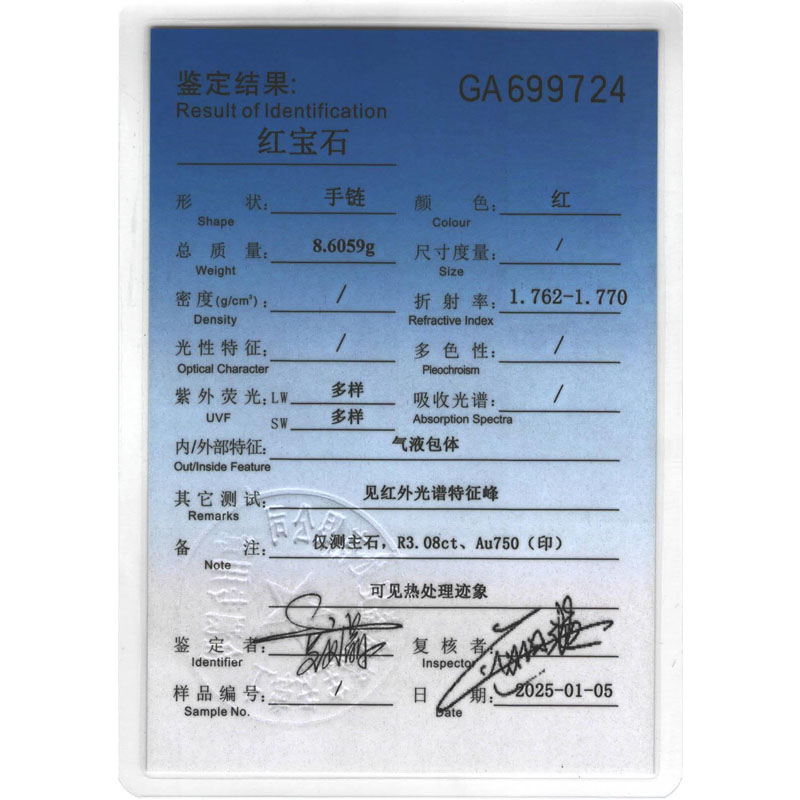 鉴定结果:
GA699724
Result of Identification
红宝石
形 状: 手链 颜 色: 红
Shape Colour
总 质 量: 8.6059g 尺寸度量: /
Weight Size
密度(g/cm³): / 折 射 率: 1.762-1.770
Density Refractive Index
光性特征: / 多 色 性: /
Optical Character Pleochroism
紫外荧光: LW 多样 吸收光谱: /
UVF SW 多样 Absorption Spectra
内/外部特征: 气液包体
Out/Inside Feature
其它测试: 见红外光谱特征峰
Remarks
备 注: 仅测主石, R3.08ct、Au750 (印)
Note
可见热处理迹象
鉴 定 者: 复 核 者:
Identifier Inspector
样品编号: / 日 期: 2025-01-05
Sample No. Date